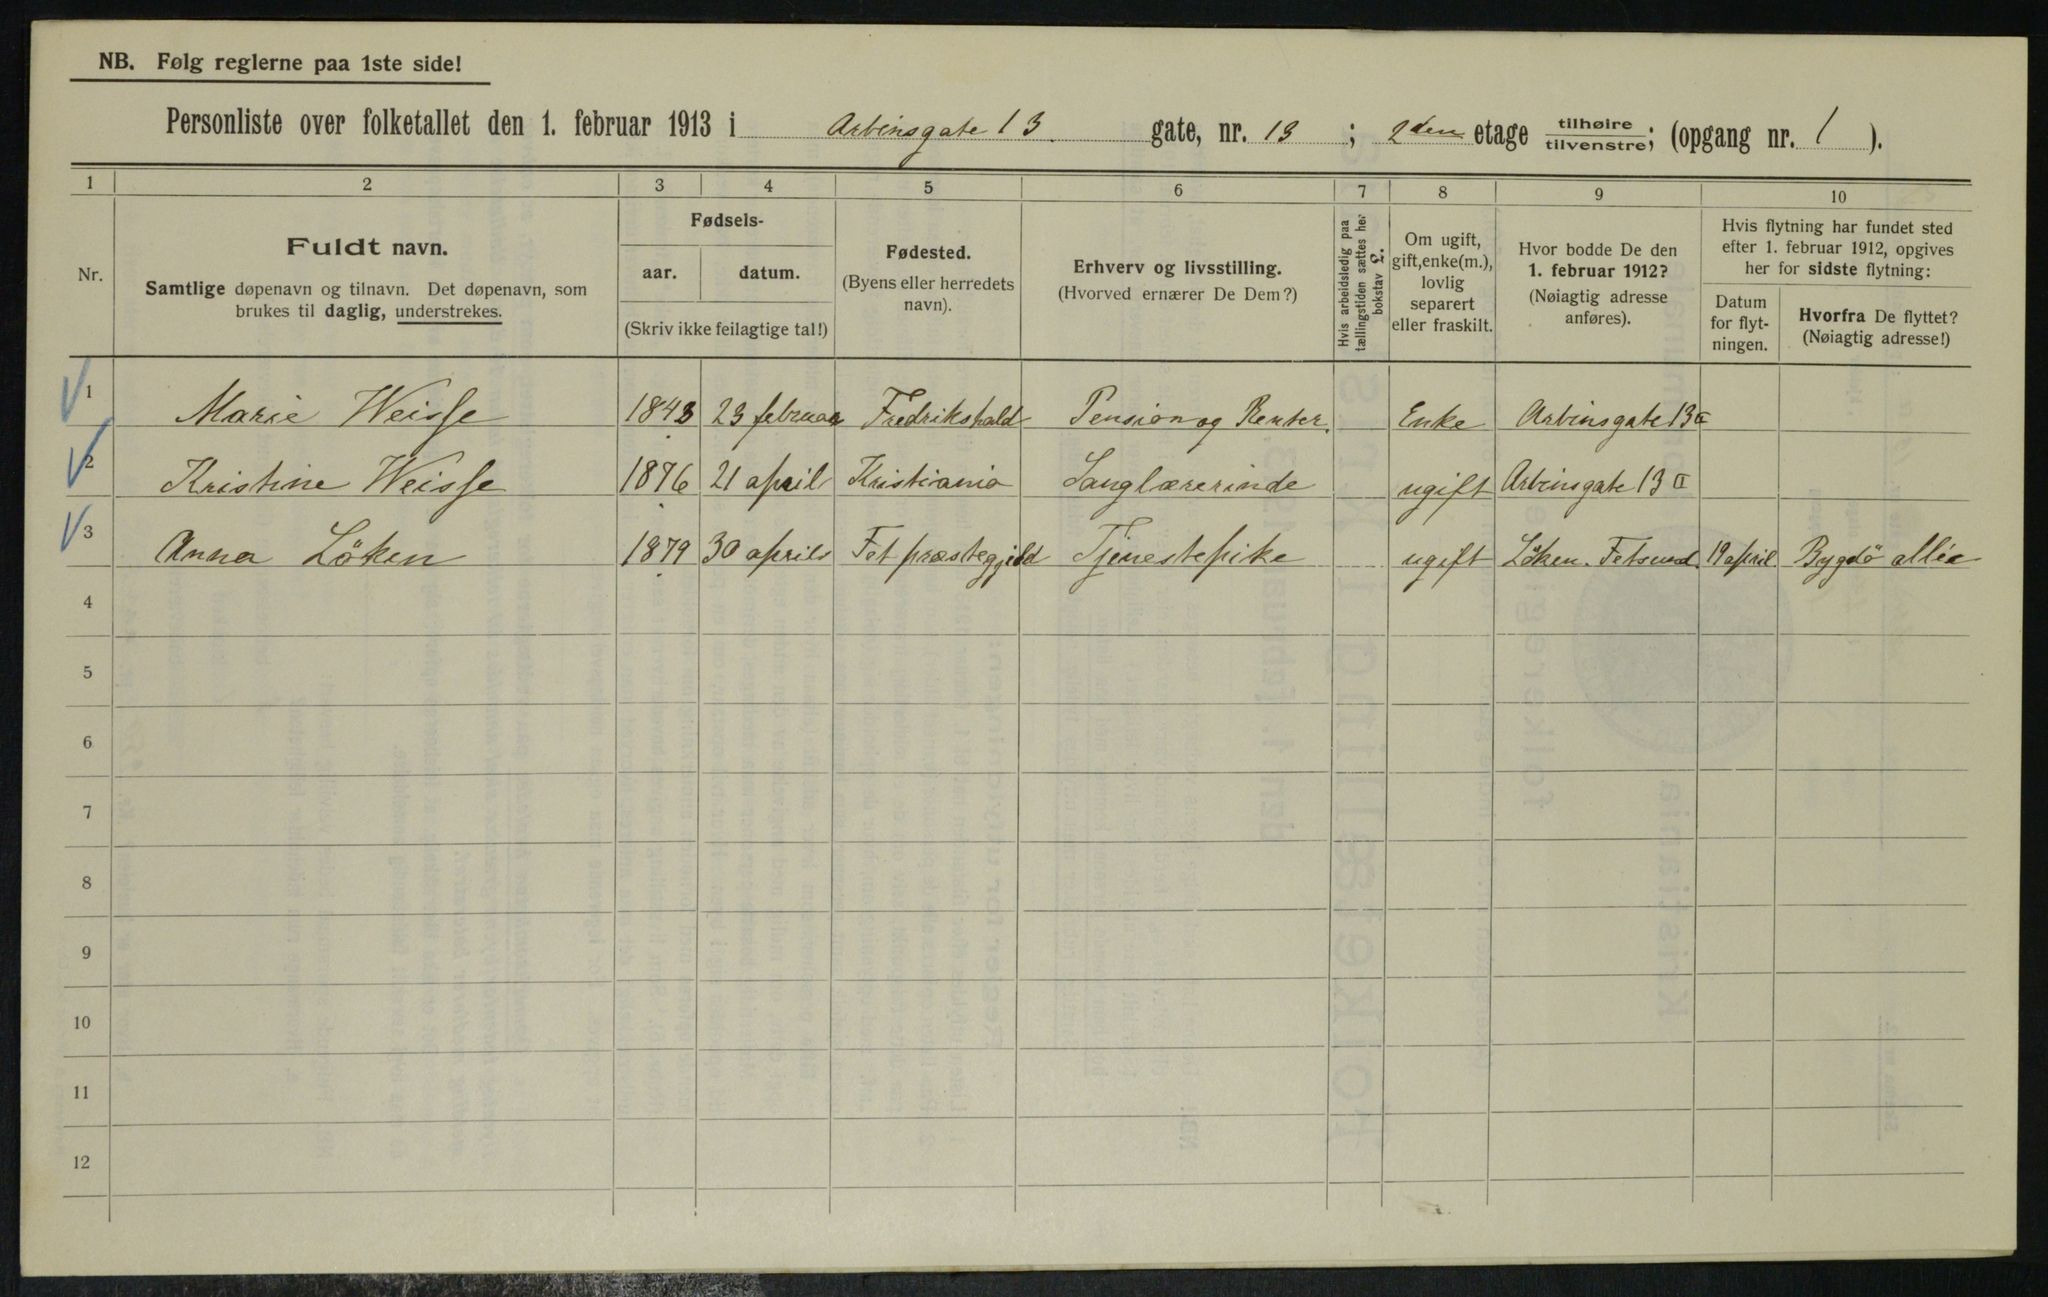 NB. Følg reglerne paa 1ste side!
Personliste over folketallet den 1. februar 1913 i Arbinsgate 13 gate, nr. 13; 2den etage tilhøire tilvenstre; (opgang nr. 1).
1 2 3 4 5 6 7 8 9 10
Nr.
Fuldt navn.
Samtlige døpenavn og tilnavn. Det døpenavn, som
brukes til daglig, understrekes.
Fødsels-
aar. datum.
(Skriv ikke feilagtige tal!)
Fødested.
(Byens eller herredets
navn).
Erhverv og livsstilling.
(Hvorved ernærer De Dem?)
Hvis arbeidsledig paa
tællingstiden sættes her
bokstav L.
Om ugift,
gift, enke(m.),
lovlig
separert
eller fraskilt.
Hvor bodde De den
1. februar 1912?
(Nøiagtig adresse
anføres).
Hvis flytning har fundet sted
efter 1. februar 1912, opgives
her for sidste flytning:
Datum
for flyt-
ningen.
Hvorfra De flyttet?
(Nøiagtig adresse!)
1 Marie Weisse 1843 23 februar Fredrikshald Pension og Renter. Enke Arbinsgate 13 II
2 Kristine Weisse 1876 21 april Kristiania Sanglærerinde ugift Arbinsgate 13 II
3 Anna Löken 1879 30 april Fet præstegjeld Tjenestepike ugift Löken. Fetsund. 19 april Bygdö allée
4
5
6
7
8
9
10
11
12